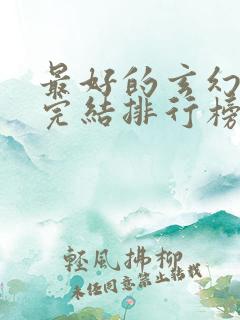 最好的玄幻
完結排行榜
輕風拂柳
未經同意禁止轉載